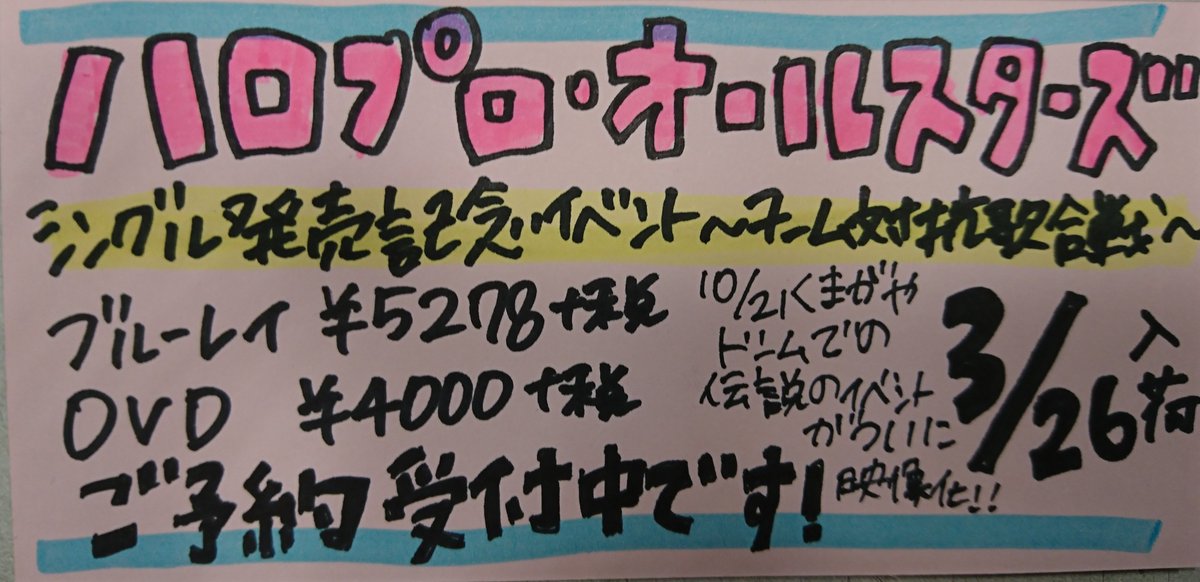 ハロプロ・オールスターズ
シングル発売記念イベント～チーム対抗歌合戦～
ブルーレイ ¥5278+税
DVD ¥4000+税
10/21くまがや
ドームでの
伝説のイベント
がついに
映像化!!
3/26入荷
ご予約受付中です!